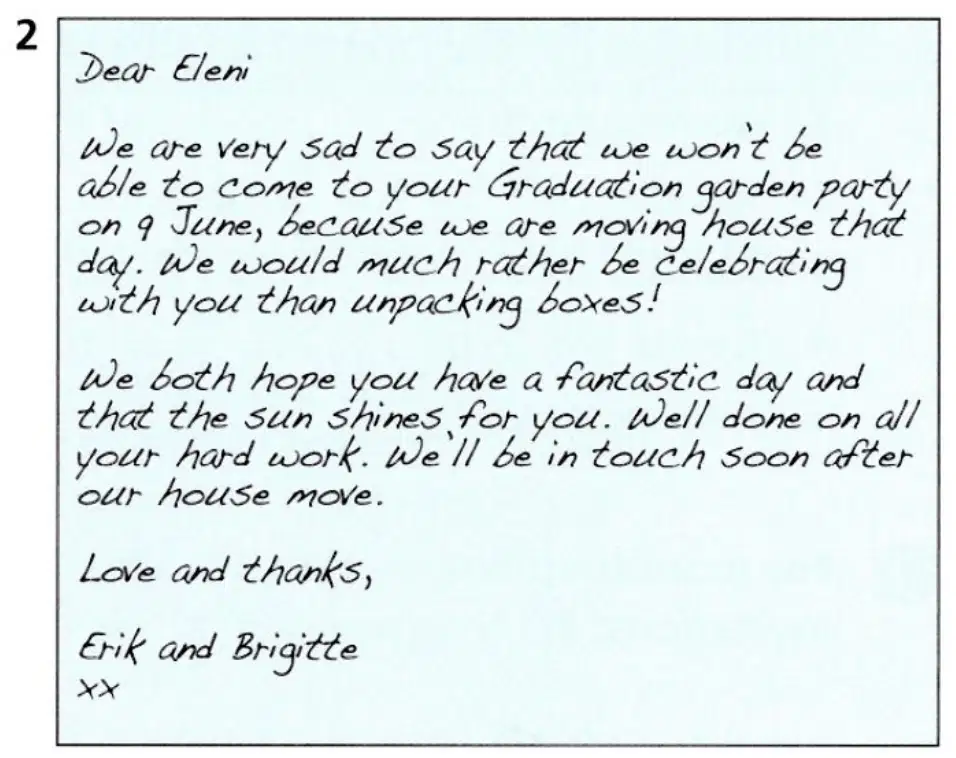 2
Dear Eleni
We are very sad to say that we won't be
able to come to your Graduation garden party
on 9 June, because we are moving house that
day. We would much rather be celebrating
with you than unpacking boxes!
We both hope you have a fantastic day and
that the sun shines for you. Well done on all
your hard work. We'll be in touch soon after
our house move.
Love and thanks,
Erik and Brigitte
xx